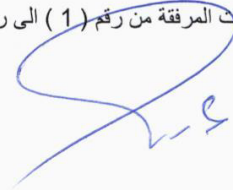 ت المرفقة من رقم ( 1 ) الى ر